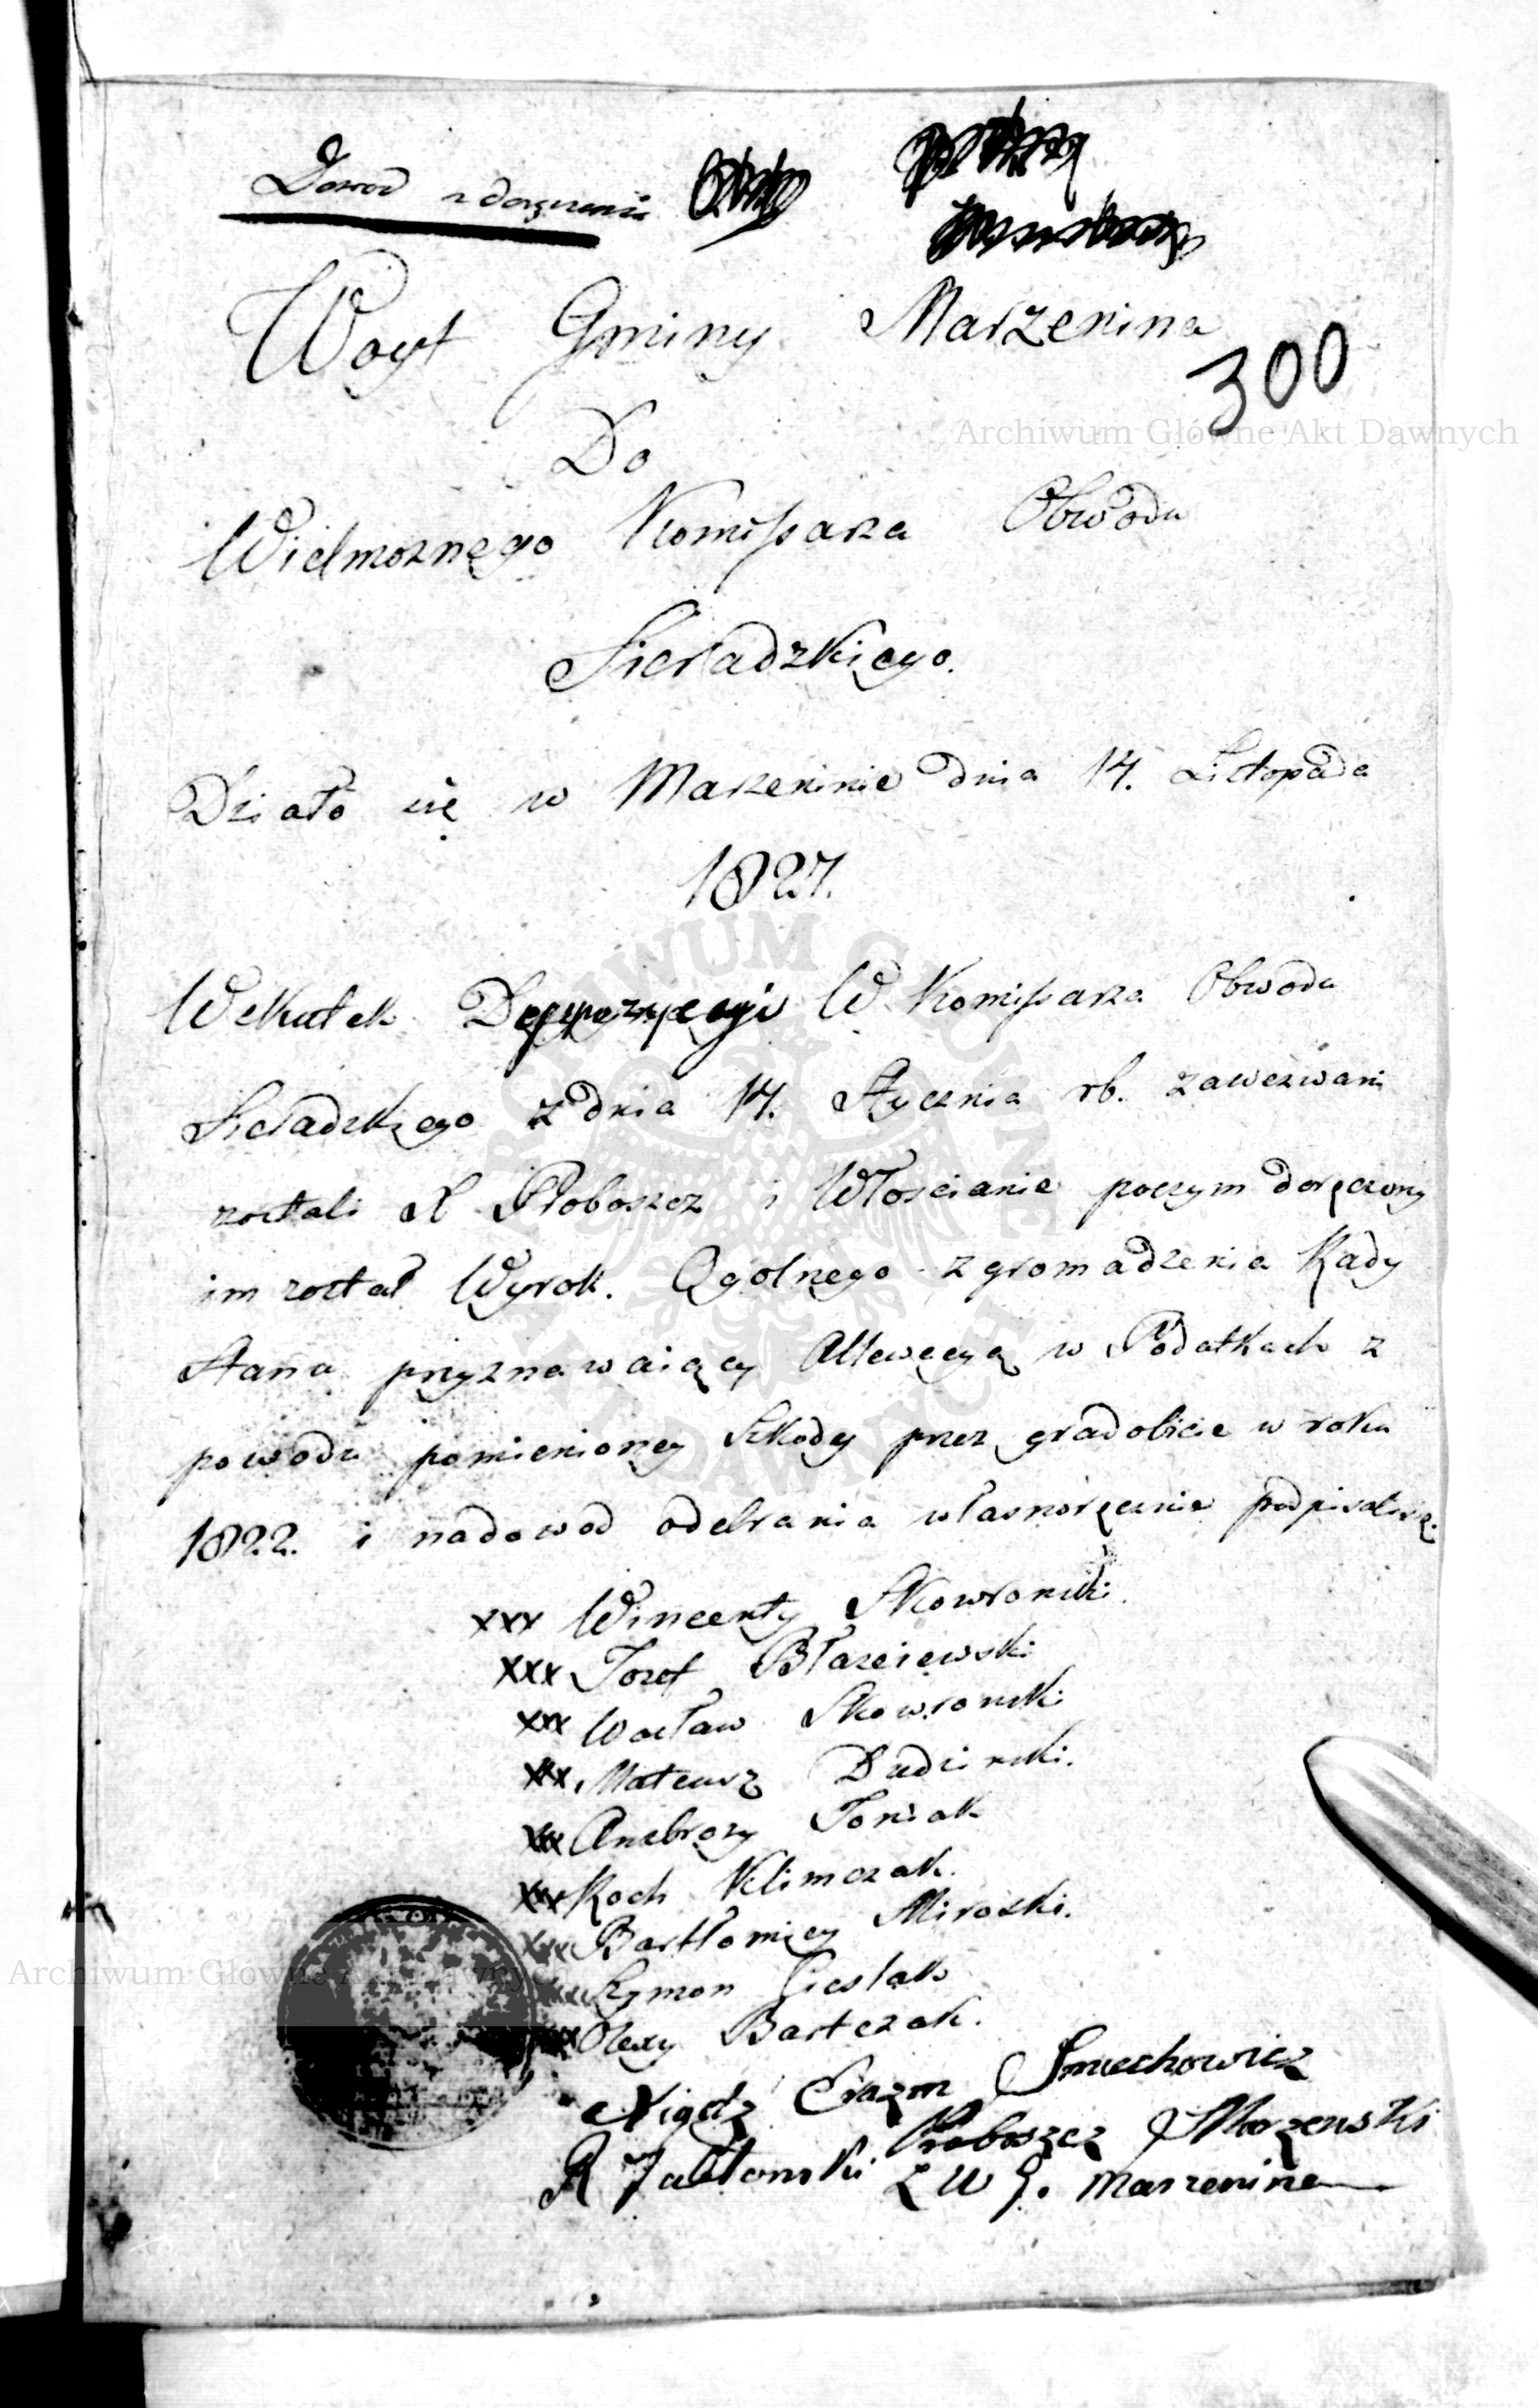 Dowod z doręczenia
Woyt Gminy Marzenina
300
Archiwum Główne Akt Dawnych
Do
Wielmoznęgo Komissarza Obwodu
Sieradzkięgo.
Działo się w Marzeninie dnia 14. Listopada
1827.
Wskutek Dyspozycyi W Komissarza Obwodu
Sieradzkięgo z dnia 14. Stycznia rb. zawezwani
zostali X Proboszcz i Włoscianie poczym doręczony
im został Wyrok. Ogolnego zgromadzenia Rady
Stanu przyznawaiący Allewacyą w Podatkach z
powodu pomienioney Szkody przez gradobicie w roku
1822. i nadowod odebrania własnoręcznie podpisali się.
xxx Wincenty Skowronski.
xxx Jozef Błazeiewski
xxx Wacław Skowronski
xxx Mateusz Dudzinski.
xxx Ambrozy Toniak
xxx Roch Klimczak.
xxx Bartłomiey Miroski.
Archiwum Główne Akt Dawnych
xxx Szymon Cieslak
xxx Olexy Bartczak.
Xiądz Erazm Smiechowicz
Proboszcz Marzenski
R Jabłonski Z W G. Marzenina